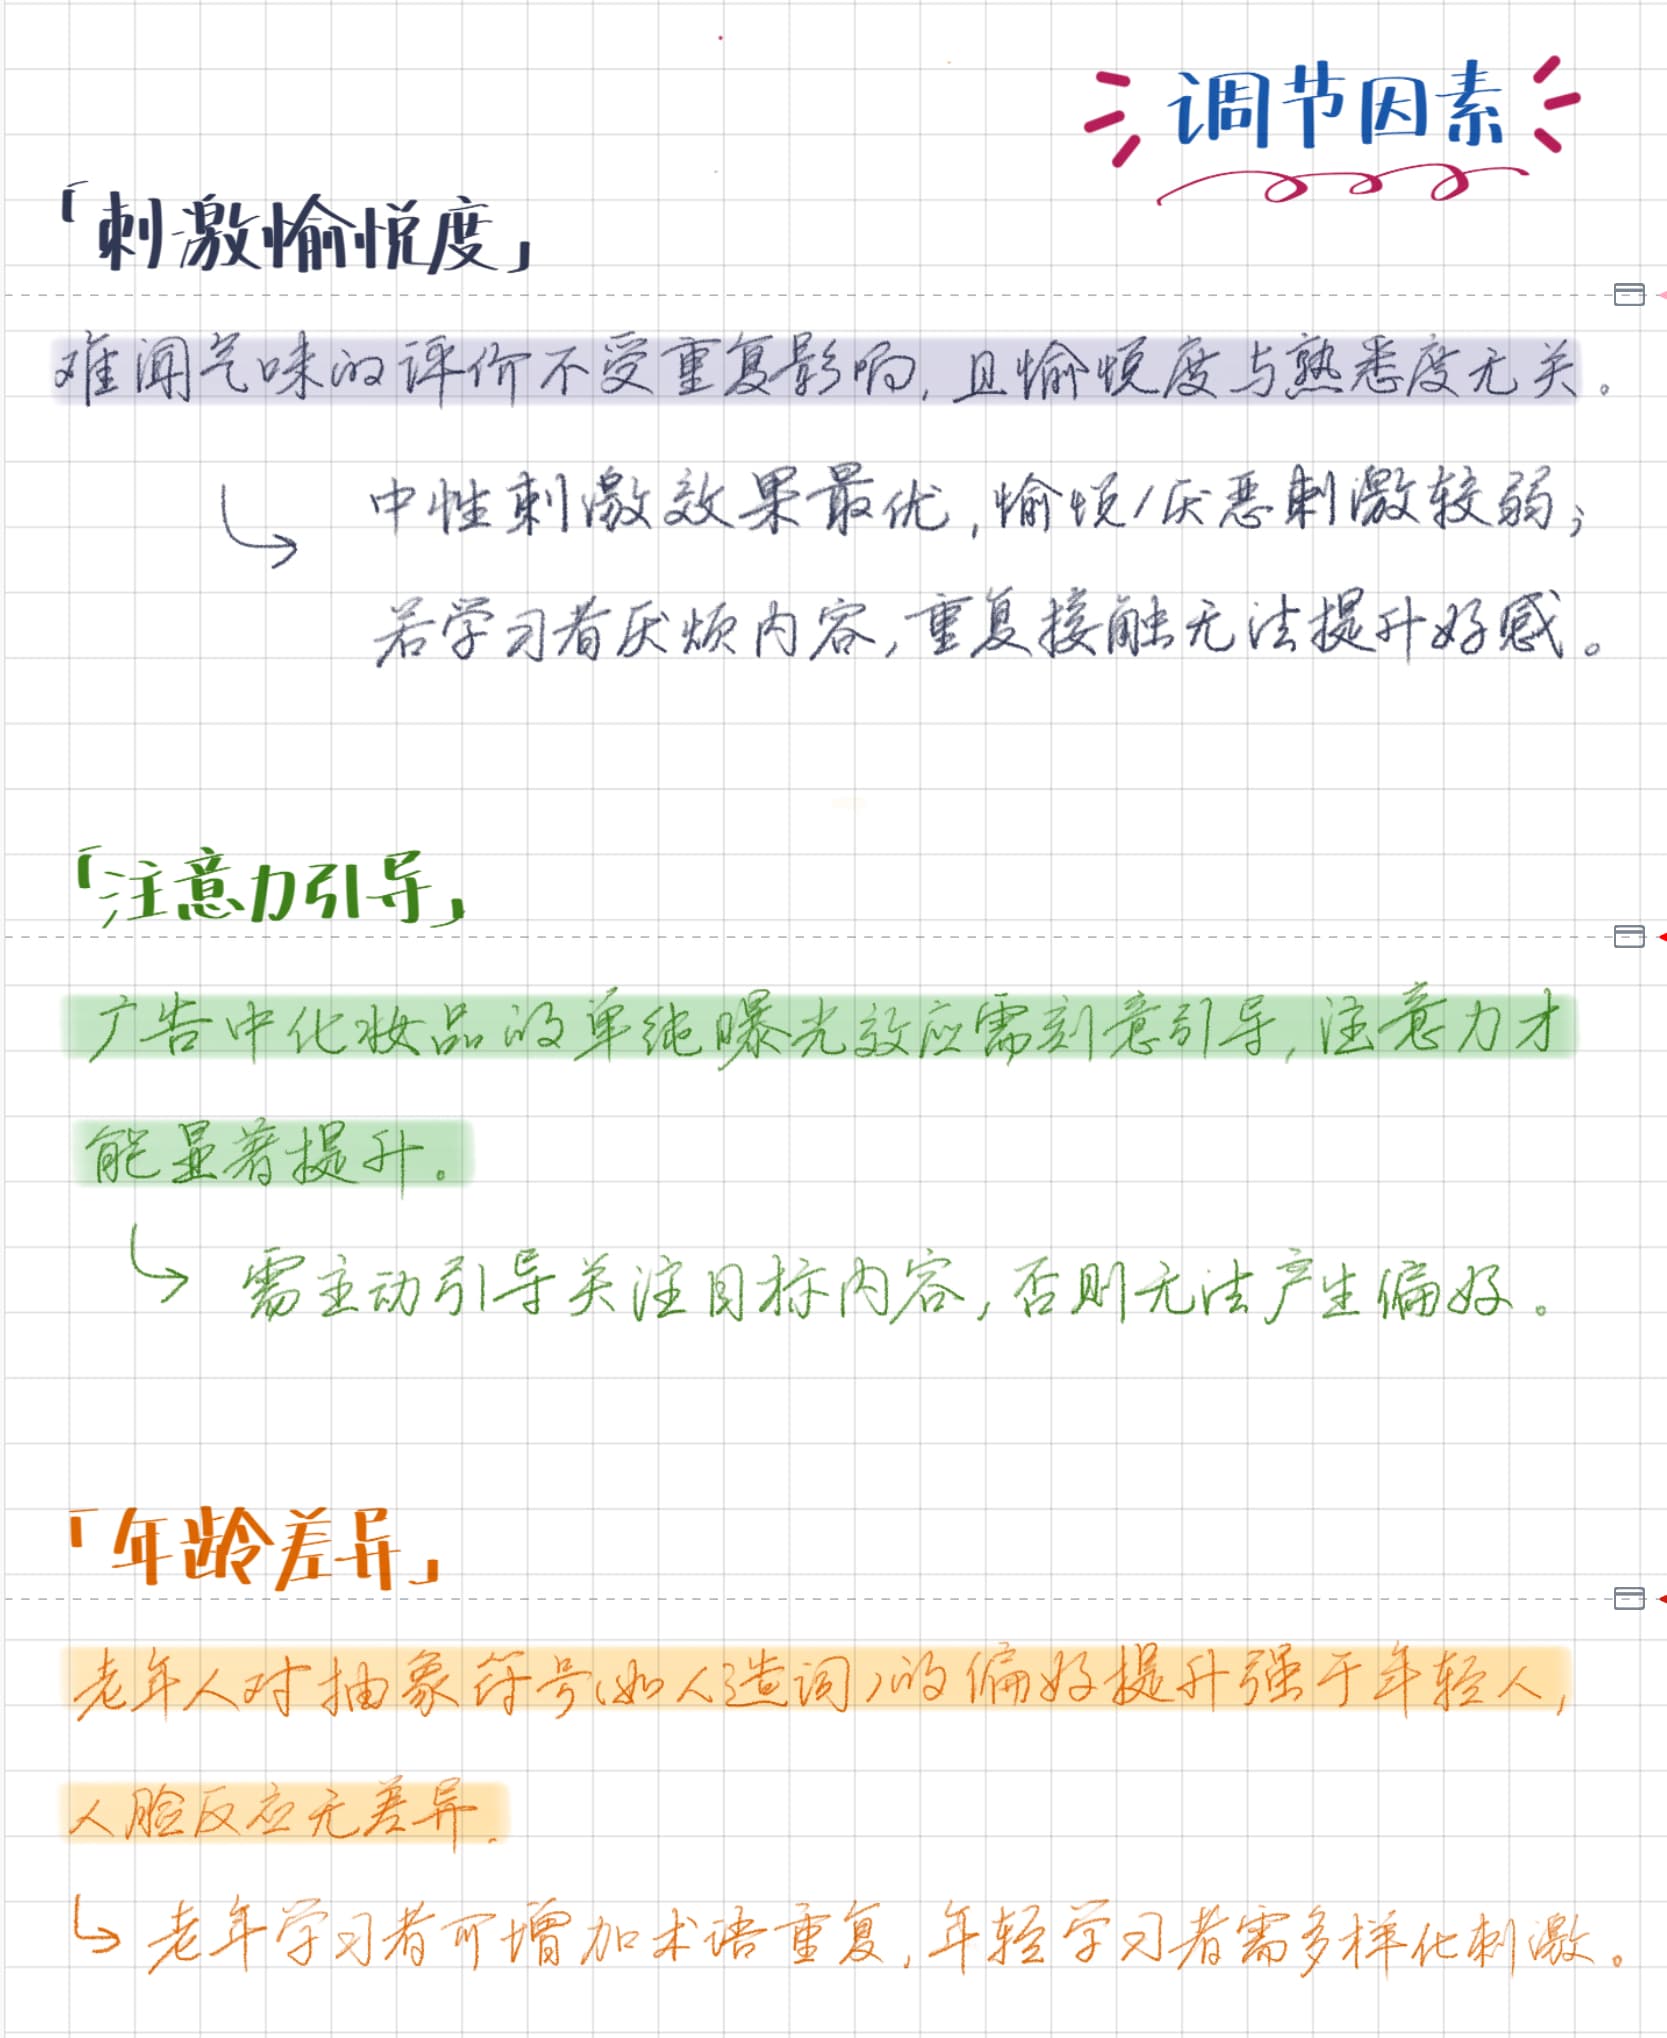 调节因素
「刺激愉悦度」
难闻气味的评价不受重复影响,且愉悦度与熟悉度无关。
中性刺激效果最优,愉悦/厌恶刺激较弱;
若学习者厌烦内容,重复接触无法提升好感。
「注意力引导」
广告中化妆品的单纯曝光效应需刻意引导,注意力才
能显著提升。
需主动引导关注目标内容,否则无法产生偏好。
「年龄差异」
老年人对抽象符号(如人造词)的偏好提升强于年轻人,
人脸反应无差异.
老年学习者可增加术语重复,年轻学习者需多样化刺激。